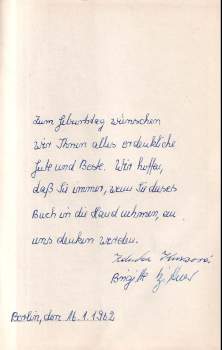 Zum Geburtstag wünschen
wir Ihnen alles erdenkliche
Gute und Beste. Wir hoffen,
daß Sie immer, wenn Sie dieses
Buch in die Hand nehmen, an
uns denken werden.
Brigitte
Berlin, den 16.1.1962